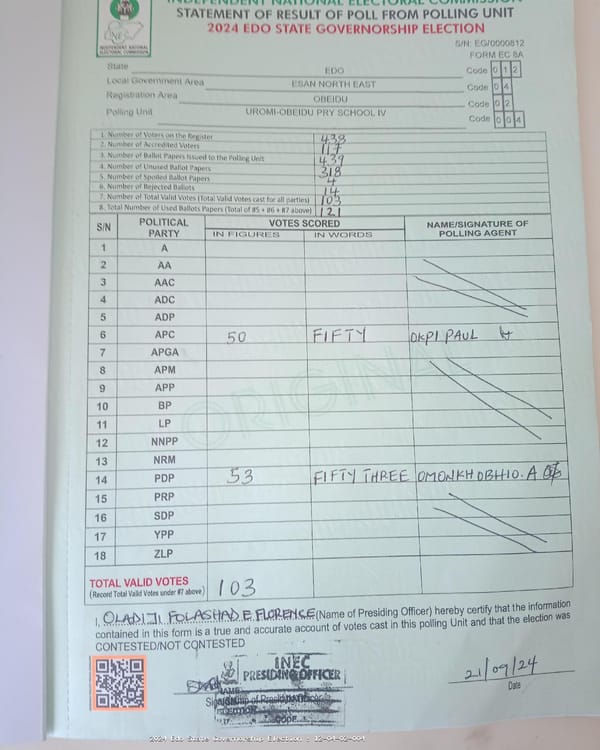 INDEPENDENT NATIONAL ELECTORAL COMMISSION
STATEMENT OF RESULT OF POLL FROM POLLING UNIT
2024 EDO STATE GOVERNORSHIP ELECTION
INEC
INDEPENDENT NATIONAL
ELECTORAL COMMISSION
S/N: EG/0000812
FORM EC 8A
State EDO Code 0 1 2
Local Government Area ESAN NORTH EAST Code 0 4
Registration Area OBEIDU Code 0 2
Polling Unit UROMI-OBEIDU PRY SCHOOL IV Code 0 0 4
1. Number of Voters on the Register 438
2. Number of Accredited Voters 117
3. Number of Ballot Papers Issued to the Polling Unit 439
4. Number of Unused Ballot Papers 318
5. Number of Spoiled Ballot Papers 4
6. Number of Rejected Ballots 14
7. Number of Total Valid Votes (Total Valid Votes cast for all parties) 103
8. Total Number of Used Ballots Papers (Total of #5 + #6 + #7 above) 121
S/N POLITICAL PARTY VOTES SCORED NAME/SIGNATURE OF POLLING AGENT
IN FIGURES IN WORDS
1 A
2 AA
3 AAC
4 ADC
5 ADP
6 APC 50 FIFTY OKPI PAUL
7 APGA
8 APM
9 APP
10 BP
11 LP
12 NNPP
13 NRM
14 PDP 53 FIFTY THREE OMONKHOBHIO. A
15 PRP
16 SDP
17 YPP
18 ZLP
ORIGINAL
TOTAL VALID VOTES 103
(Record Total Valid Votes under #7 above)
I, OLADIJI FOLASHADE FLORENCE (Name of Presiding Officer) hereby certify that the information
contained in this form is a true and accurate account of votes cast in this polling Unit and that the election was
CONTESTED/NOT CONTESTED
INEC
PRESIDING OFFICER
21/09/24
Date
2024 Edo State Governorship Election : 12-04-02-004